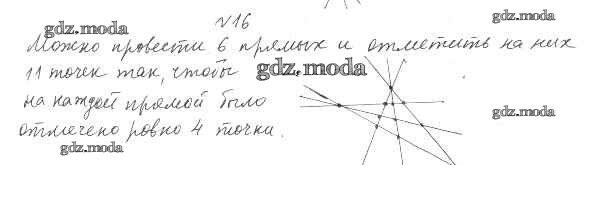 №16
gdz.moda
gdz.moda
Можно провести 6 прямых и отметить на них
11 точек так, чтобы
gdz.moda
на каждой прямой было
gdz.moda
отмечено ровно 4 точки.
gdz.moda